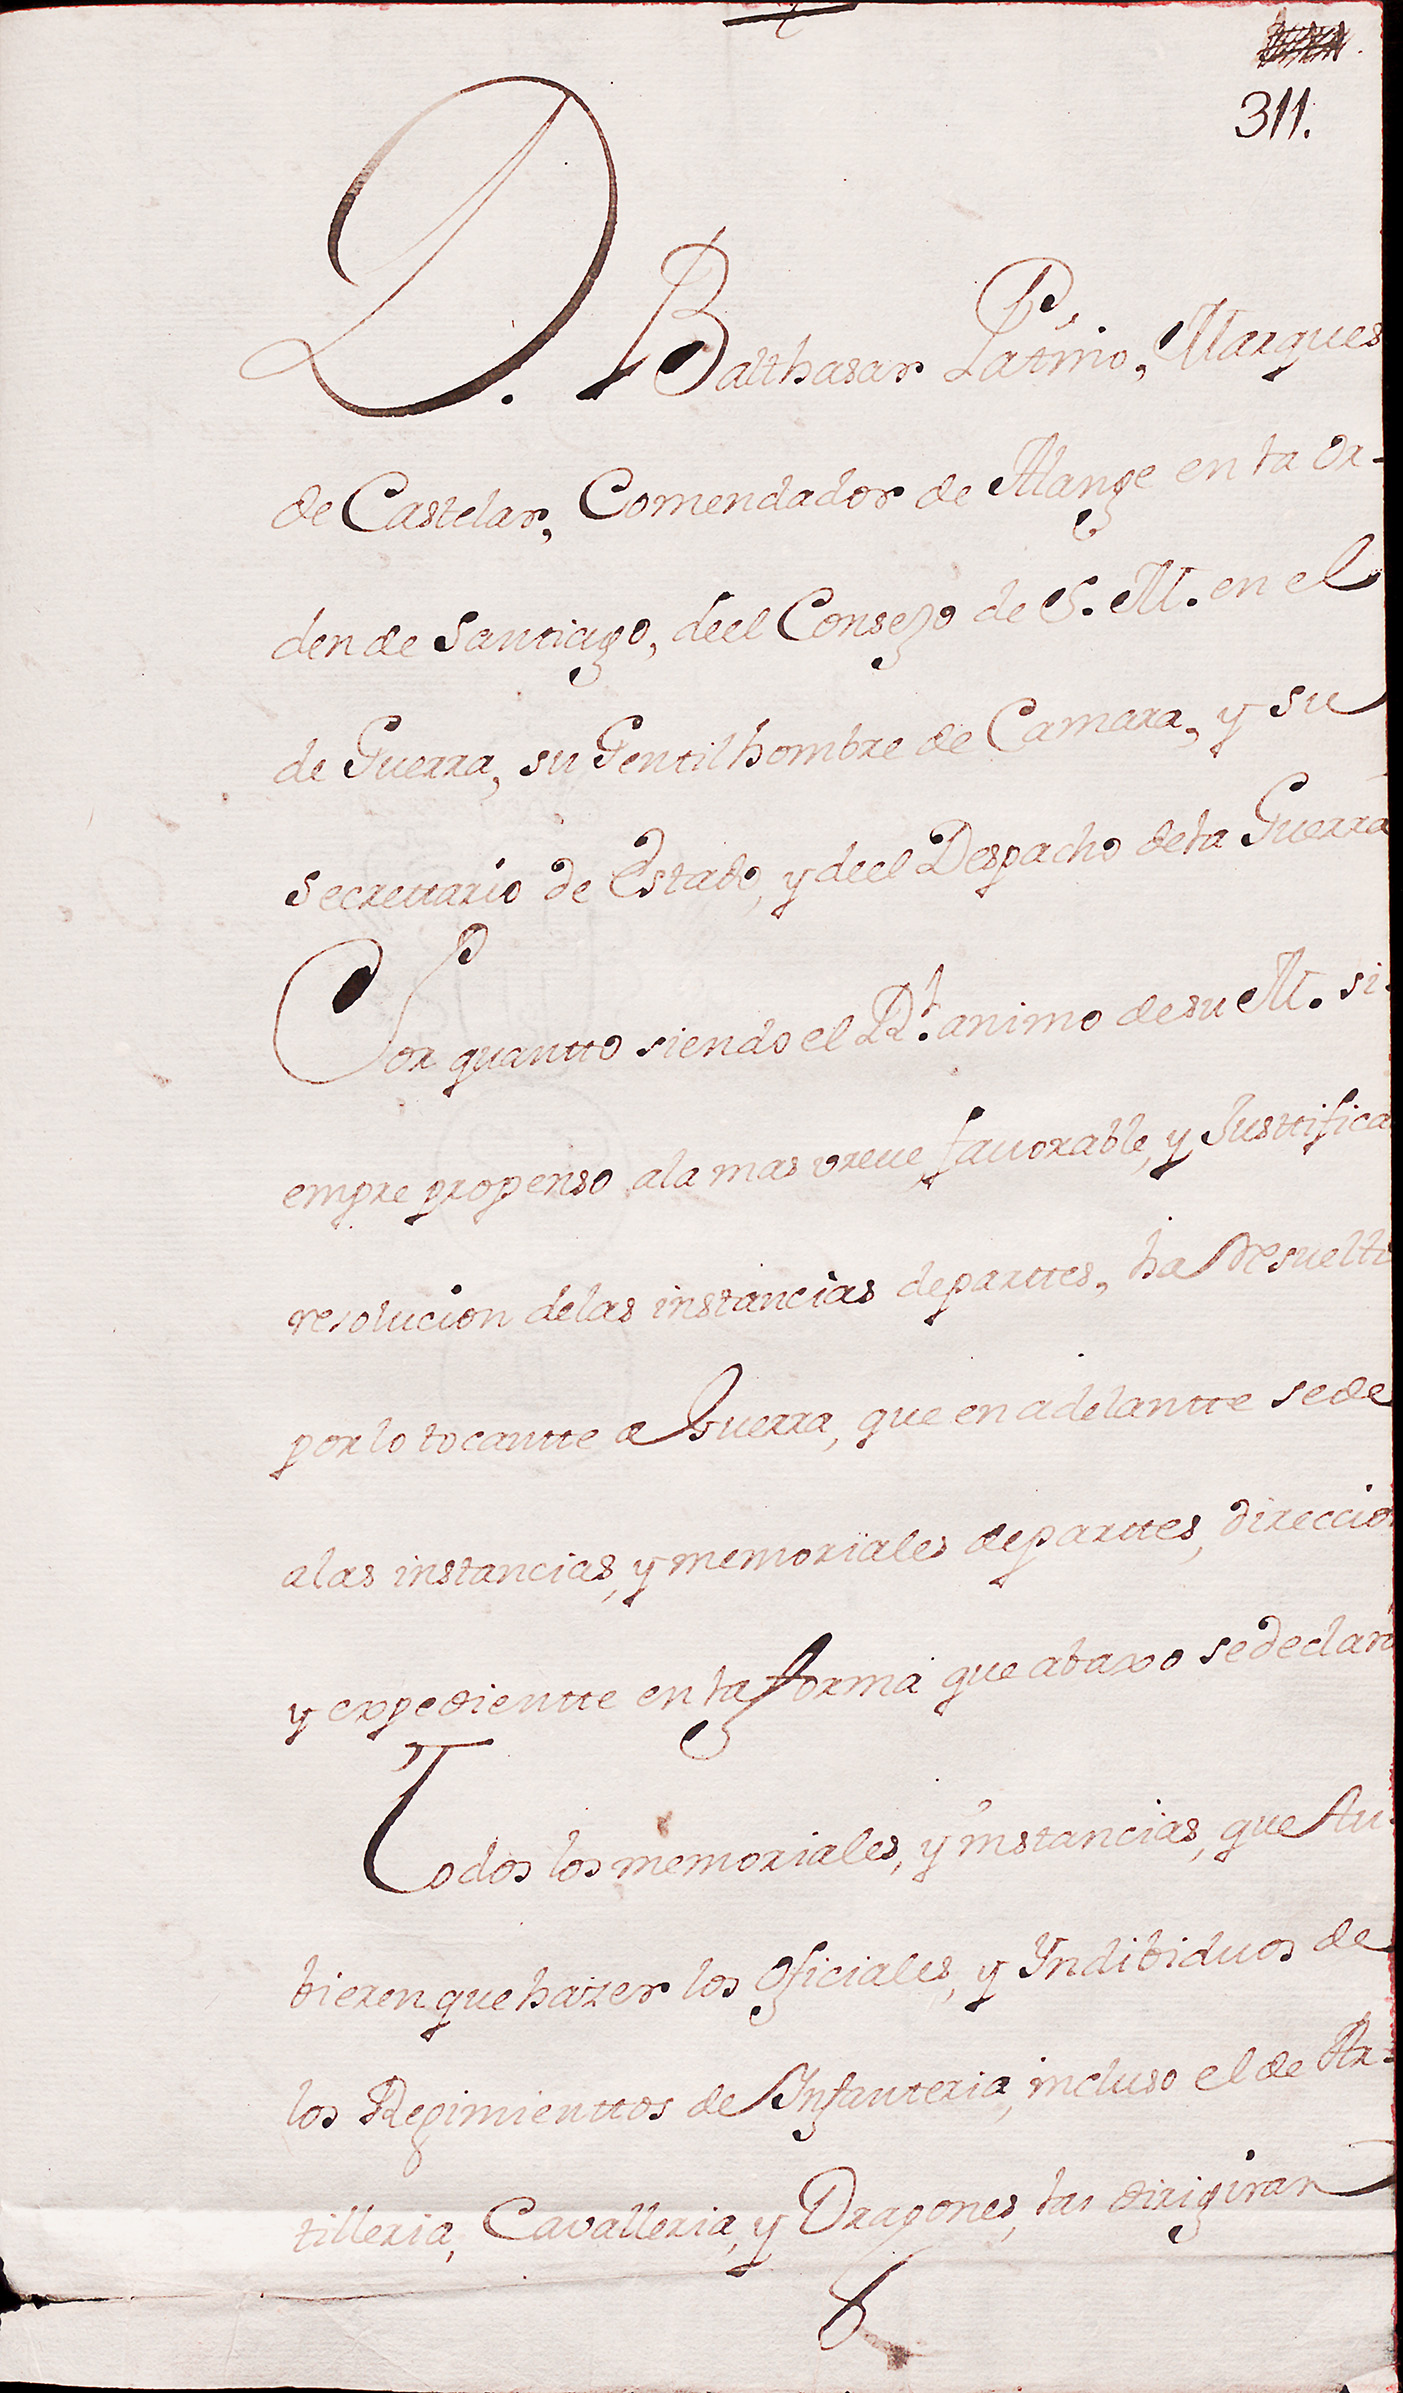 311.
D. Balthasar Patiño, Marques
de Castelar, Comendador de Alange en la Or-
den de Santiago, deel Consejo de S. M. en el
de Guerra, su Gentilhombre de Camara, y su
Secrettario de Estado, y deel Despacho dela Guerra
Por quantto siendo el Rl. animo de su M. si-
empre propenso ala mas vreue, fauorable, y Justtifica
resolucion delas instancias departtes, ha Resuelto
por lo tocantte a Guerra, que en adelantte se de
alas instancias, y memoriales departtes, direccion
y expedientte en la forma que abaxo se declara
Todos los memoriales, y instancias, que tu-
bieren que hazer los Oficiales, y Yndibiduos de
los Regimienttos de Ynfanteria, incluso el de Ar-
tilleria, Cavalleria, y Dragones, las dirigiran